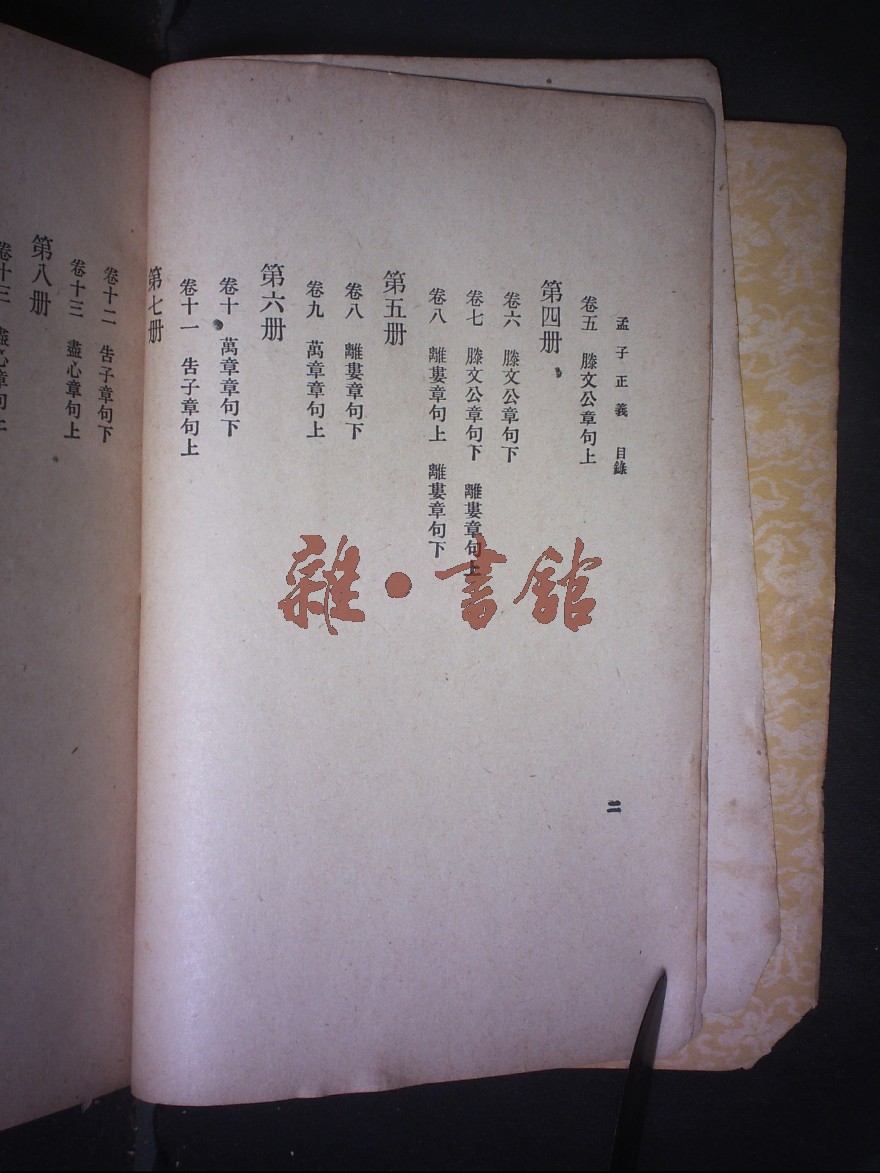 孟子正義 目錄
二
卷五 滕文公章句上
第四册
卷六 滕文公章句下
卷七 滕文公章句下 離婁章句上
卷八 離婁章句上 離婁章句下
第五册
卷八 離婁章句下
卷九 萬章章句上
第六册
卷十 萬章章句下
卷十一 告子章句上
第七册
卷十二 告子章句下
卷十三 盡心章句上
第八册
卷十三 盡心章句上
雜·書館